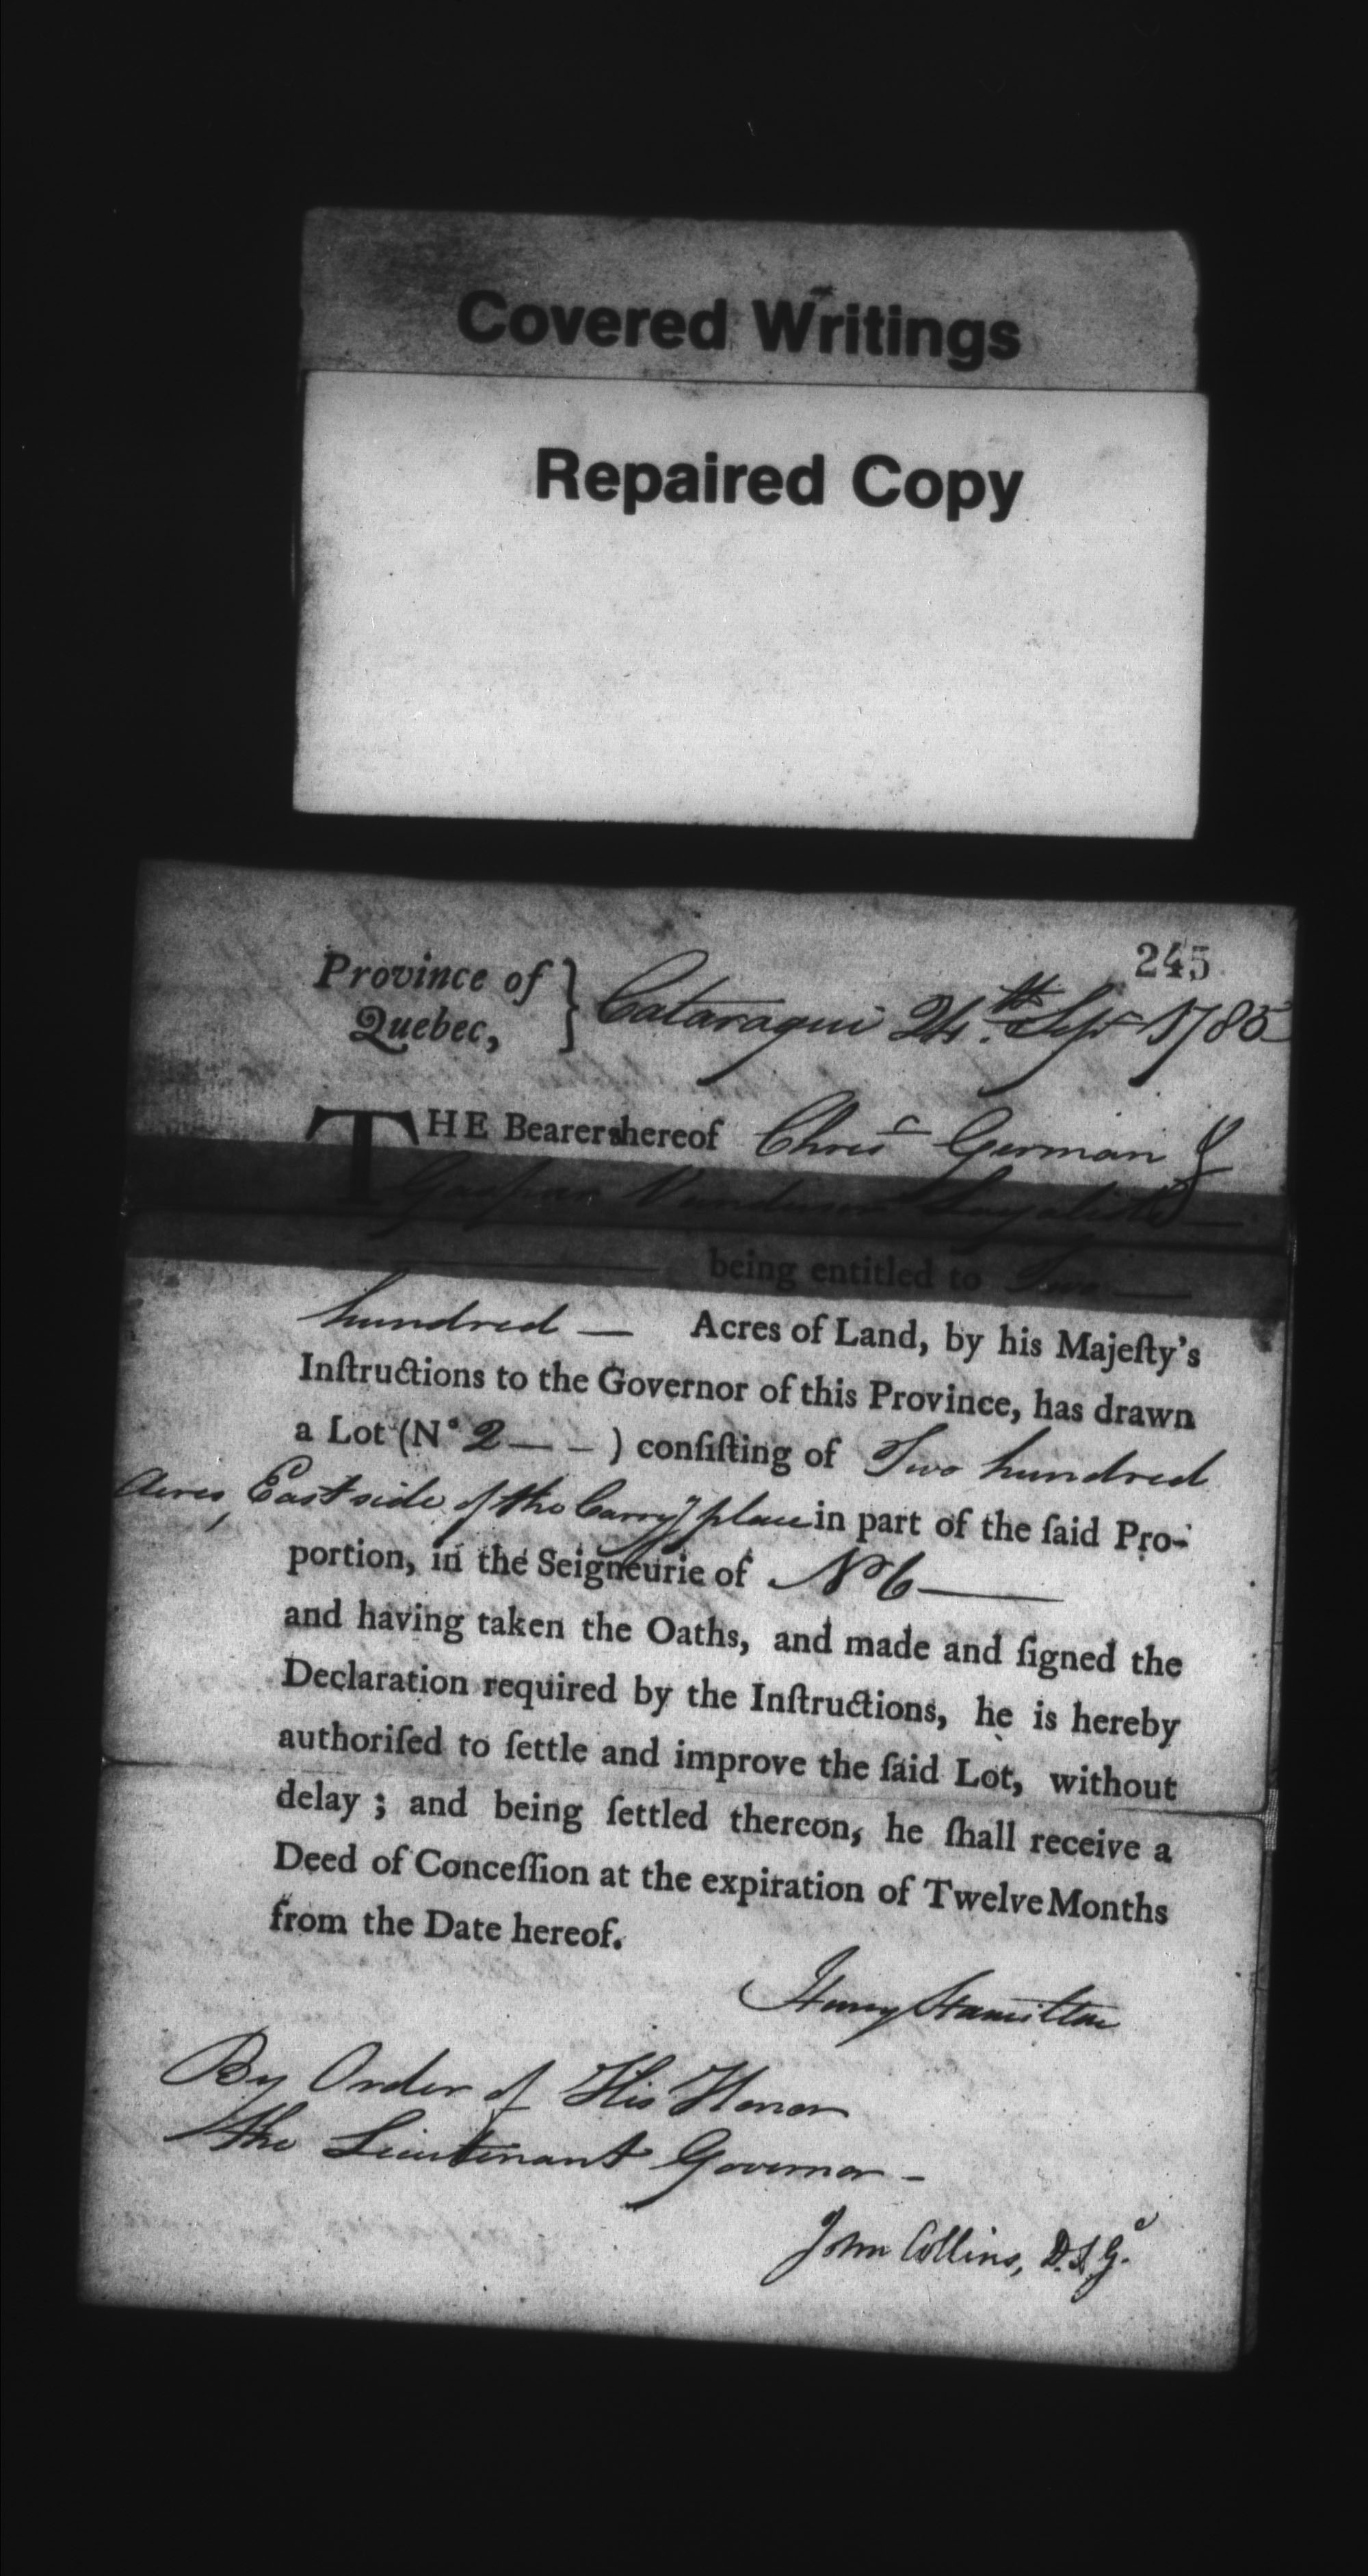 Covered Writings
Repaired Copy
245
Province of } Cataraqui 24.th Sepr 1785
Quebec,
THE Bearershereof Chrisr German &
Gaspar Vanduson Loyalists —
being entitled to Two —
hundred — Acres of Land, by his Majeſty's
Inſtructions to the Governor of this Province, has drawn
a Lot (N° 2 — – ) conſiſting of Two hundred
Acres, East side of the Carryg place in part of the ſaid Pro-
portion, in the Seigneurie of No 6 —
and having taken the Oaths, and made and ſigned the
Declaration required by the Inſtructions, he is hereby
authoriſed to ſettle and improve the ſaid Lot, without
delay ; and being ſettled thereon, he ſhall receive a
Deed of Conceſſion at the expiration of Twelve Months
from the Date hereof.
Henry Hamilton
By Order of His Honor
the Lieutenant Governor –
John Collins, D.S.G.